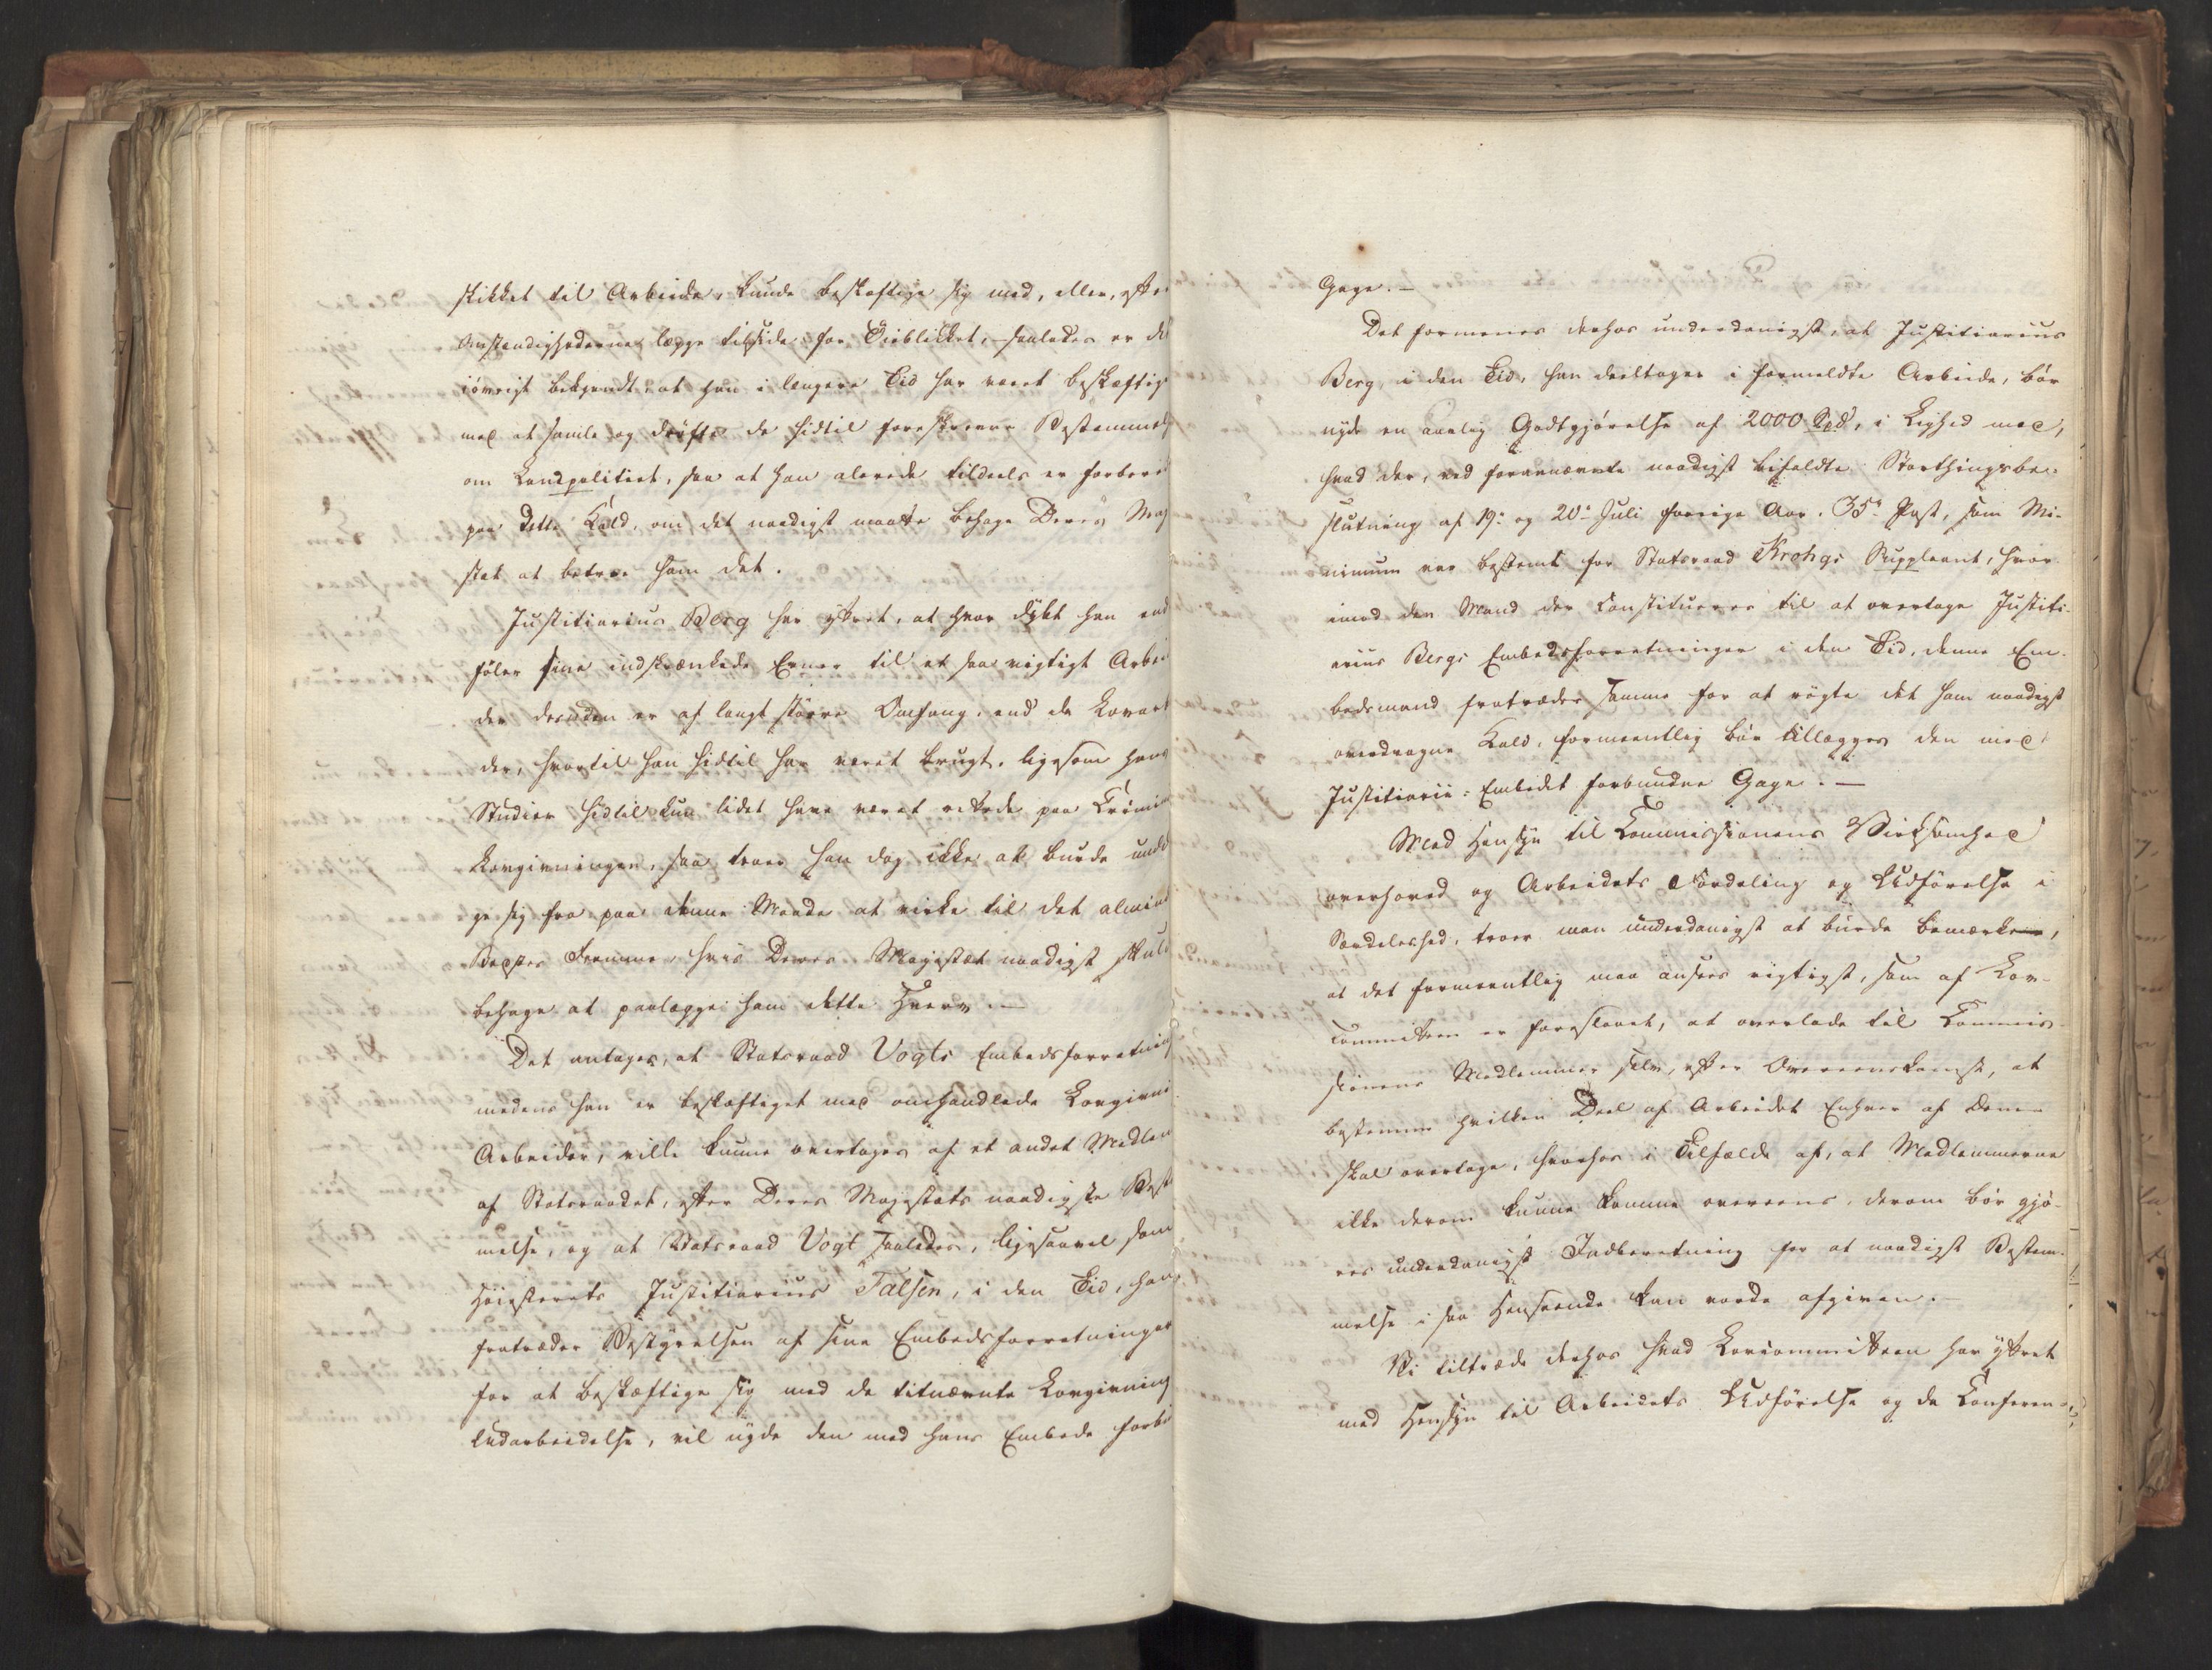 skikket til Arbeide, kunde beskæftige sig med, eller, efter
Omstændighederne lægge tilside for Øieblikket, – saaledes er det
iøvrigt bekjendt, at han i længere Tid har været beskæftig
med at samle og drøfte de hidtil foreskrevne Bestemmels
om Landpolitiet, saa at han alerede tildeels er forbere
paa dette Kald, om det naadigst maatte behage Deres Maj
stæt at betroe ham det.
Justitiarius Berg har yttret, at hvor dybt han end
føler sine indskrænkede Evner til et saa vigtigt Arbei
der desuden er af langt større Omfang, end de Lovarb
der, hvortil han hidtil har været brugt, ligesom hans
Studier hidtil kun lidet have været rettede paa Krimin
Lovgivningen, saa troer han dog ikke at burde undd
ge sig fra paa denne Maade at virke til det almind
Bedstes Fremme, hvis Deres Majestæt naadigst skuld
behage at paalægge ham dette Hverv. –
Det antages, at Statsraad Vogts Embedsforretning
medens han er beskæftiget med omhandlede Lovgivni
Arbeider, ville kunne overtages af et andet Medlem
af Statsraadet, efter Deres Majestæts naadigste Best
melse, og at Statsraad Vogt saaledes, ligesaavel som
Høiesterets Justitiarius Falsen, i den Tid, han
fratræder Bestyrelsen af sine Embedsforretninger
for at beskæftige sig med de titnævnte Lovgivning
Udarbeidelse, vil nyde den med hans Embede forbu
Gage. –
Det formenes derhos underdanigst, at Justitiarius
Berg, i den Tid, han deeltager i formeldte Arbeide, bør
nyde en aarlig Godtgjørelse af 2000 Spd, i Lighed med,
hvad der, ved forannævnte naadigst bifaldte Storthingsbe-
slutning af 19de og 20de Juli forrige Aar, 35te Post, som Mi-
nimum var bestemt for Statsraad Krohgs Suppleant, hvor-
imod den Mand der constitueres til at overtage Justiti-
arius Bergs Embedsforretninger i den Tid, denne Em-
bedsmand fratræder samme for at røgte det ham naadigst
overdragne Kald, formeentlig bør tillægges den med
Justitiarii-Embedet forbundne Gage. –
Med Hensyn til Commissionens Virksomhed
overhoved og Arbeidets Fordeling og Udførelse i
Særdeleshed, troer man underdanigst at burde bemærke,
at det formeentlig maa ansees rigtigst, som af Lov-
committeen er foreslaaet, at overlade til Commis-
sionens Medlemmer selv, efter Overeenskomst, at
bestemme hvilken Deel af Arbeidet Enhver af Dem
skal overtage, hvorhos i Tilfælde af, at Medlemmerne
ikke derom kunne komme overeens, derom bør gjø-
res underdanigst Indberetning for at naadigst Bestem-
melse i saa Henseende kan vorde afgiven. –
Vi tiltræde derhos hvad Lovcommitteen har yttret
med Hensyn til Arbeidets Udførelse og de Conferen-